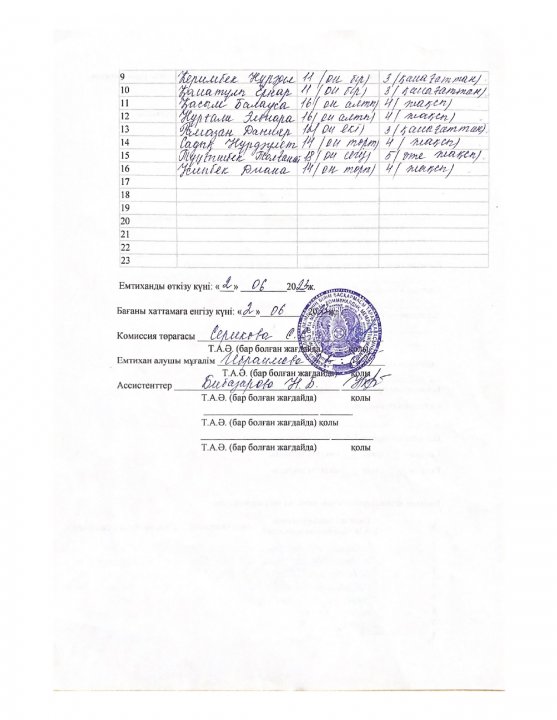 9 Керимбек Нұрдәул 11 (он бір) 3 (қанағаттан)
10 Қанатұлы Ернар 11 (он бір) 3 (қанағаттан)
11 Қасым Балауса 16 (он алты) 4 (жақсы)
12 Нұрғали Эльвира 16 (он алты) 4 (жақсы)
13 Рамазан Данияр 12 (он екі) 3 (қанағаттан)
14 Садық Нұрдәулет 14 (он төрт) 4 (жақсы)
15 18 (он сегіз) 5 (өте жақсы)
16 Диана 14 (он төрт) 4 (жақсы)
17
18
19
20
21
22
23
Емтиханды өткізу күні: «2» 06 2023ж.
Бағаны хаттамаға енгізу күні: «2» 06 20
Комиссия төрағасы Серикова С.
Т.А.Ә. (бар болған жағдайда) қолы
Емтихан алушы мұғалім Ибраимова
Т.А.Ә. (бар болған жағдайда) қолы
Ассистенттер
Т.А.Ә. (бар болған жағдайда) қолы
Т.А.Ә. (бар болған жағдайда) қолы
Т.А.Ә. (бар болған жағдайда) қолы